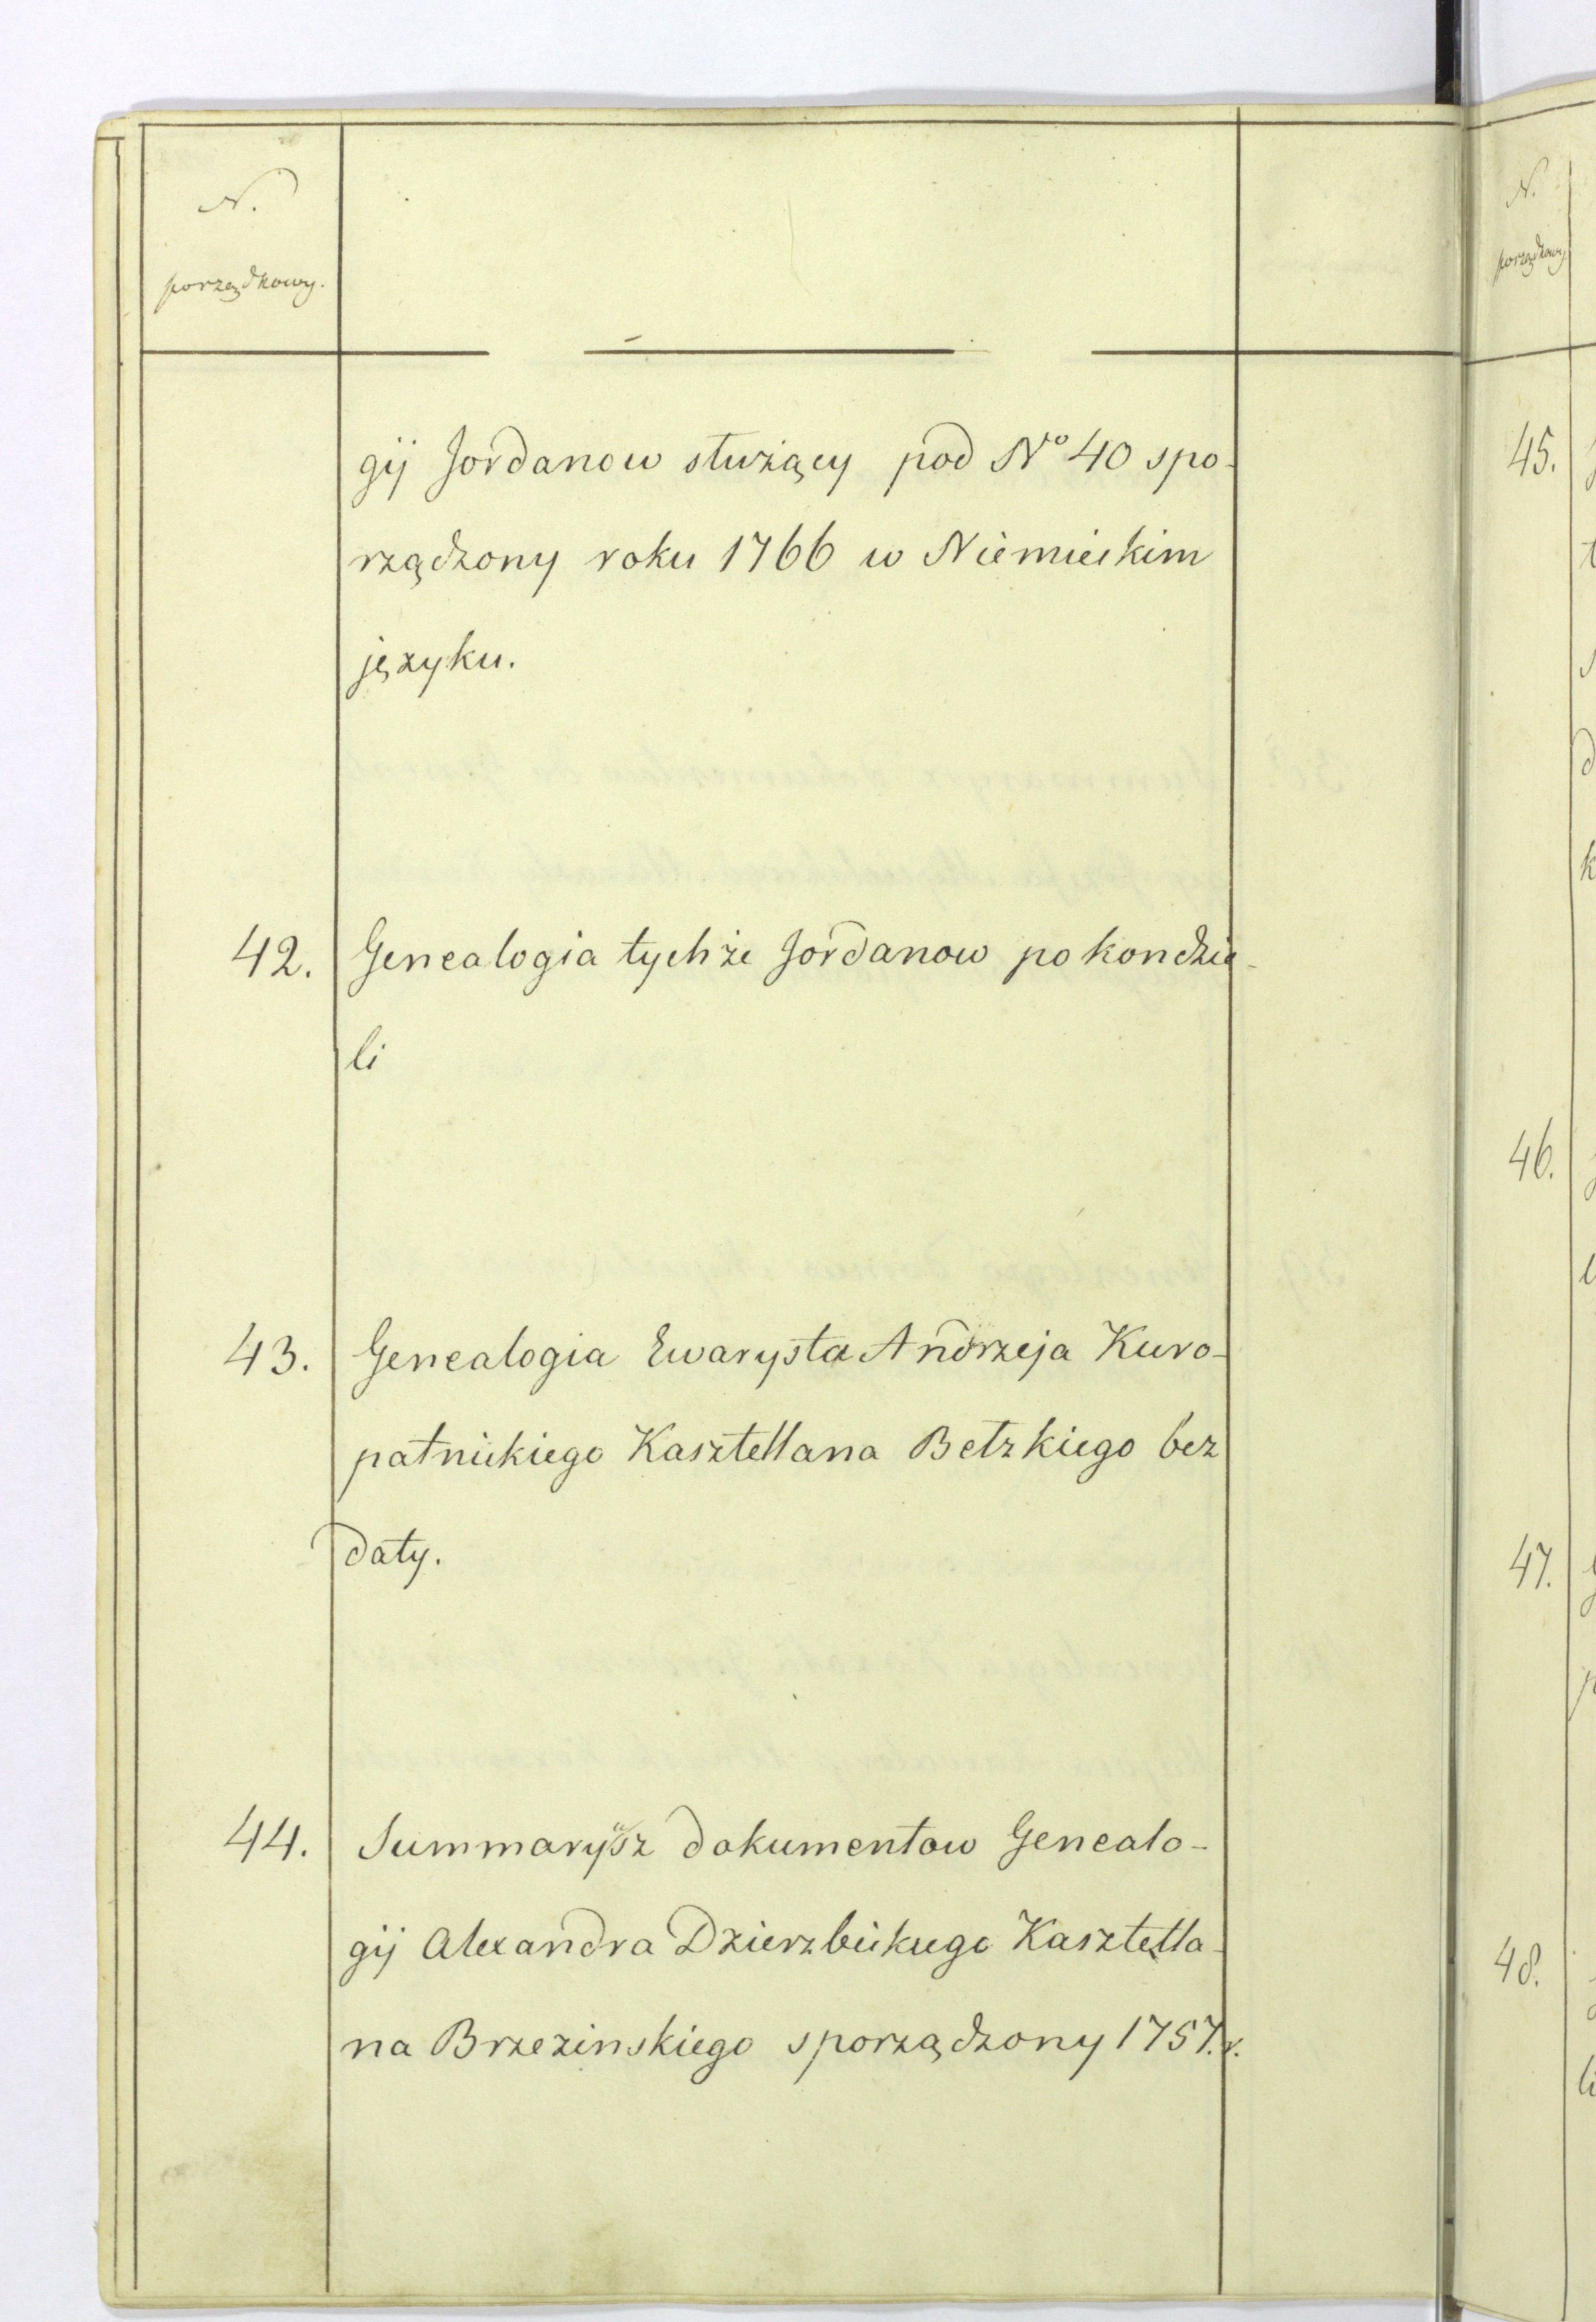 N.
porządkowy.
gij Jordanow służący pod No 40 spo-
rządzony roku 1766 w Niemieckim
języku.
42. Genealogia tychże Jordanow po kondzie-
li
43. Genealogia Ewarysta Andrzeja Kuro-
patnickiego Kasztellana Bełzkiego bez
daty.
44. Summarysz dokumentow Genealo-
gij Alexandra Dzierzbickiego Kasztella-
na Brzezinskiego sporządzony 1757. r.
N.
porządkowy
45.
46.
47.
48.